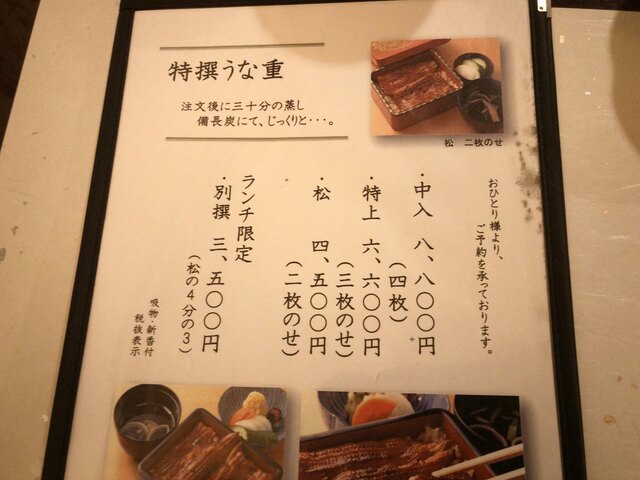 特撰うな重
注文後に三十分の蒸し
備長炭にて、じっくりと・・・。
松 二枚のせ
おひとり様より、
ご予約を承っております。
・中入 八、八〇〇円
(四枚)
・特上 六、六〇〇円
(三枚のせ)
・松 四、五〇〇円
(二枚のせ)
ランチ限定
・別撰 三、五〇〇円
(松の4分の3)
吸物・新香付
税抜表示